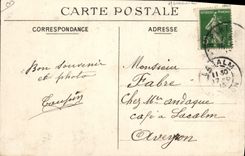 CARTE POSTALE
CORRESPONDANCE
ADRESSE
Bon souvenir
et photo
Monsieur
Fabre
Chez Mr andaque
café à Lacalm
Aveyron